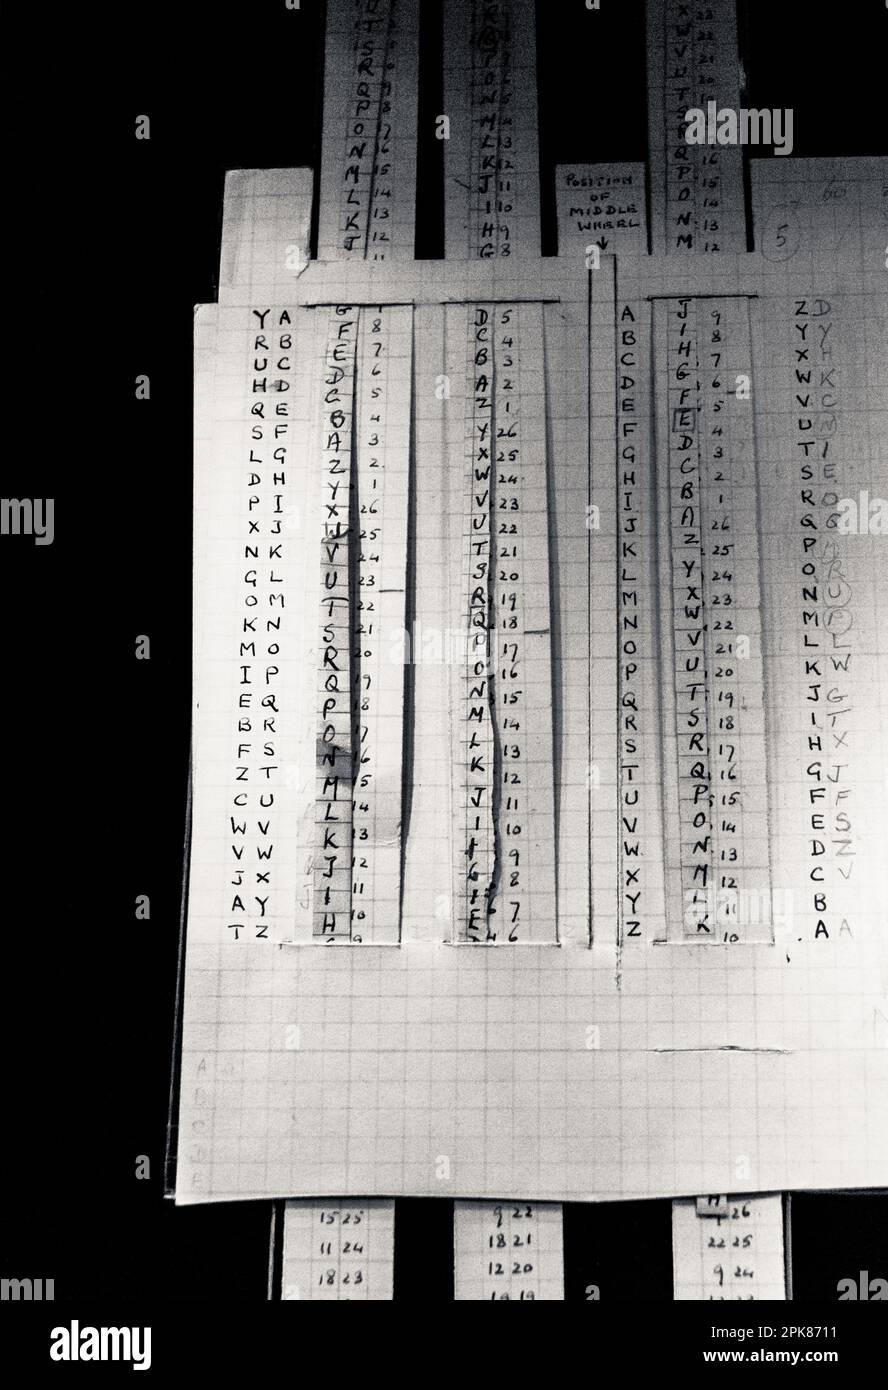 X 23
W 22
V 21
U 20
S T
R
Q P Q 16
P O P 15
O 17 N O 14
N 16 M N 13
M 15 L 13 M 12
L 14 K 12
K 13 J 11
J 12 I 10
11 H 9
G 8
POSITION
OF
MIDDLE
WHEEL
↓
5
60
Y A G D 5 A J 9 Z D
R B F 8 C 4 B I 8 Y Y
U C E 7 B 3 C H 7 X H
H D D 6 A 2 D G 6 W K
Q E C 5 Z 1 E F 5 V C
S F B 4 Y 26 F E 4 U N
L G A 3 X 25 G D 3 T I
D H Z 2 W 24 H C 2 S E
P I Y 1 V 23 I B 1 R O
X J X 26 U 22 J A 26 Q Q
N K W 25 T 21 K Z 25 P
G L V 24 S 20 L Y 24 O R
O M U 23 R 19 M X 23 N U
K N T 22 Q 18 N W 22 M
M O S 21 P 17 O V 21 L L
I P R 20 O 16 P U 20 K W
E Q Q 19 N 15 Q T 19 J G
B R P 18 M 14 R S 18 I T
F S O 17 L 13 S R 17 H X
Z T N 16 K 12 T Q 16 G J
C U M 15 J 11 U P 15 F F
W V L 14 I 10 V O 14 E S
V W K 13 H 9 W N 13 D Z
J X J 12 G 8 X M 12 C V
A Y I 11 F 7 Y L 11 B
T Z H 10 E 6 Z K 10 A A
9
A
B
C
D
E
15 25 9 22 26
11 24 18 21 22 25
18 23 12 20 9 24
19 19